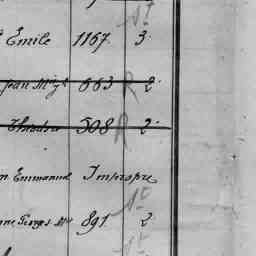 Emile 1167. 3.
Jean 663 R 2
Théodore 508 R 2
Emmanuel Impropre
Georges 891. 2